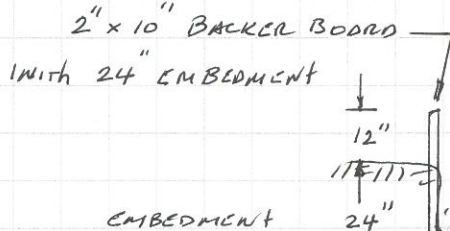 2" x 10" BACKER BOARD
WITH 24" EMBEDMENT
12"
EMBEDMENT 24"